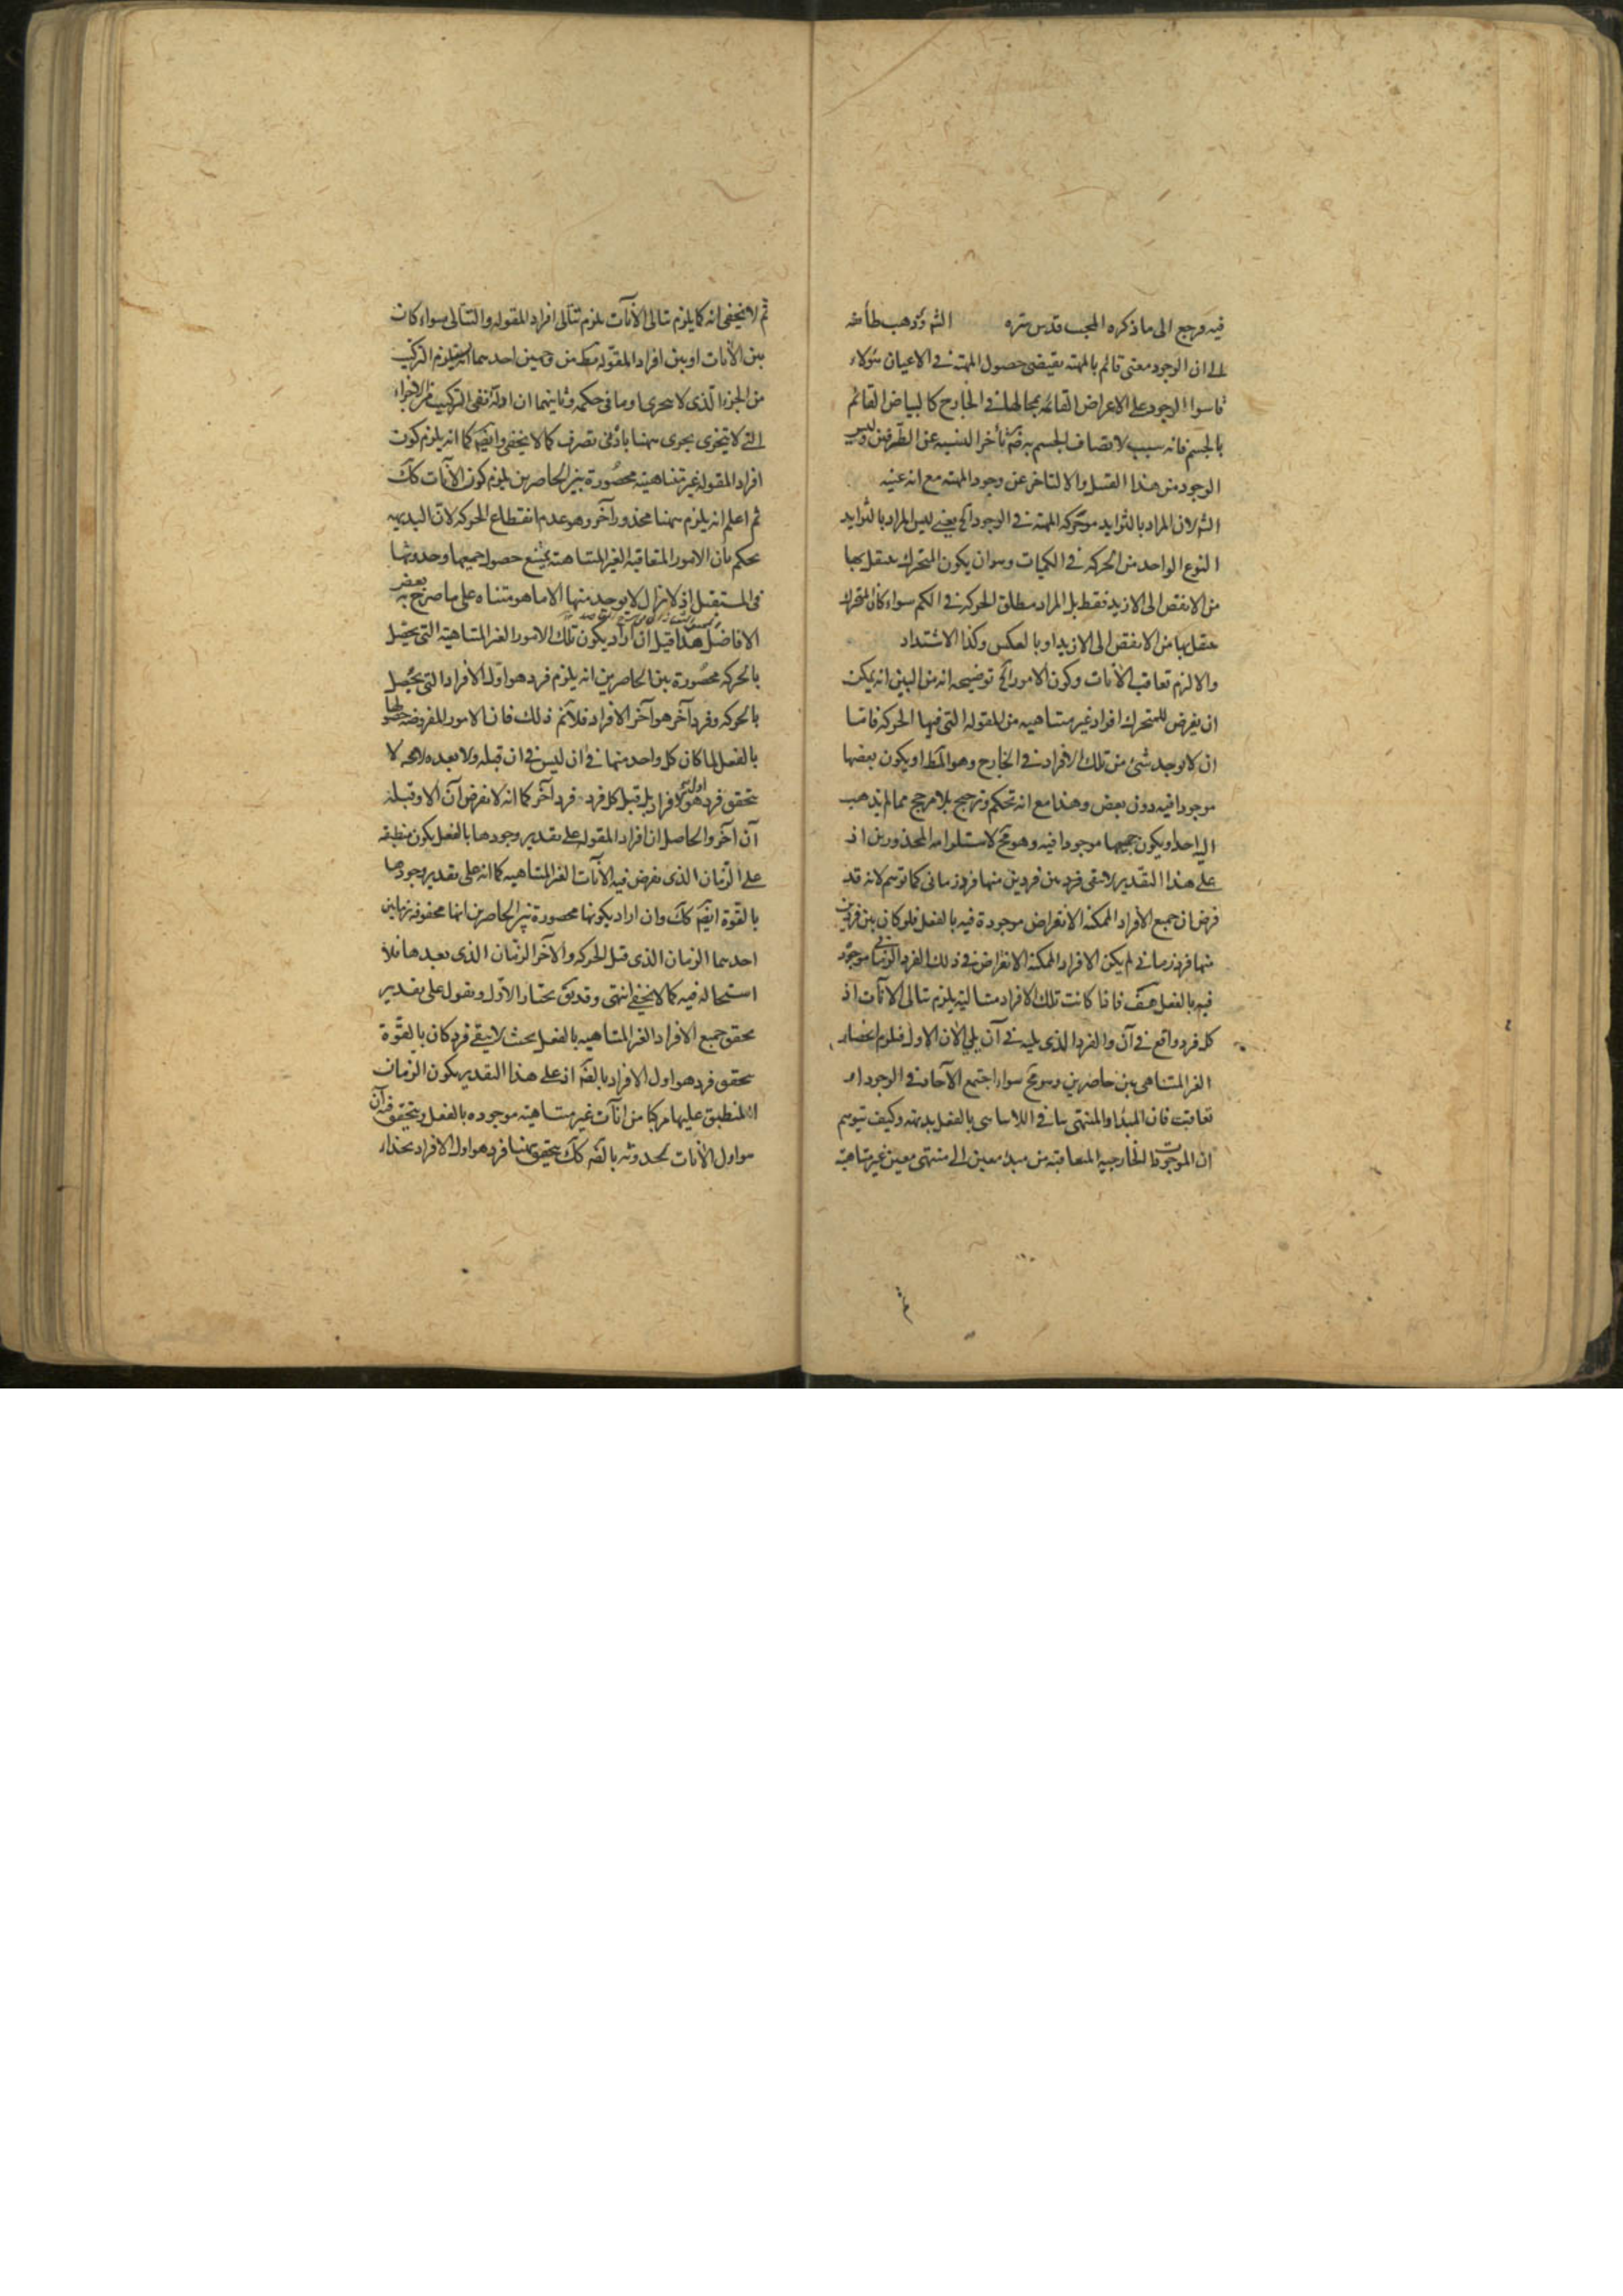 فيه فرجع الى ما ذكره المجيب قدس سره الش وذهب طائفه
الى ان الوجود معنى قائم بالمهيه يقتضى حصول المهيه فى الاعيان هؤلاء
قاسوا الوجود على الاعراض القائمه بمحالها فى الخارج كالبياض القائم
بالجسم فانه سبب لاتصاف الجسم به ضرة تأخر النسبه عن الطرفين وليس
الوجود من هذا القبيل والا لتاخر عن وجود المهيه مع انه عينه
الش لان المراد بالتزايد حركه المهيه فى الوجود الخ يعنى ليس المراد بالتزايد
النوع الواحد من الحركه فى الكميات وهو ان يكون المتحرك ينتقل بها
من الانقص الى الازيد فقط بل المراد مطلق الحركه فى الكم سواء كان المتحرك
ينتقل بها من الانقص الى الازيد او بالعكس وكذا الاشتداد
والا لزم تعاقب الانات وكون الامور الخ توضيحه انه من البين انه يمكن
ان يفرض للمتحرك افراد غير متناهيه من المقوله التى فيها الحركه فاما
ان لا يوجد شئ من تلك الافراد فى الخارج وهو المط او يكون بعضها
موجودا فيه دون بعض وهذا مع انه تحكم وترجيح بلا مرجح مما لم يذهب
اليه احد او يكون جميعها موجودا فيه وهو مح لاستلزامه المحذورين اذ
على هذا التقدير لا يبقى فرد بين فردين منها فرد زمانى كما توهم لانه قد
فرض ان جميع الافراد الممكنه الانفراض موجودة فيه بالفعل فلو كان بين فردين
منها فرد زمانى لم يكن الافراد الممكنة الانفراض فى ذلك الفرد الزمانى موجود
فيه بالفعل هف فاذا كانت تلك الافراد متتاليه يلزم تتالى الانات اذ
كل فرد واقع فى آن والفرد الذى يليه فى آن يلى الان الاول فيلزم انحصار
الغير المتناهى بين حاصرين وهو مح سواء اجتمع الآحاد فى الوجود او
تعاقبت فان المبدأ والمنتهى ينافى اللاتناهى بالفعل بديهه وكيف يتوهم
ان الموجودات الخارجيه المتعاقبه من مبدء معين الى منتهى معين غير متناهيه
ثم لا يخفى انه كما يلزم تتالى الانات يلزم تتالى افراد المقوله والتتالى سواء كان
بين الانات او بين افراد المقوله بط من وجهين احدهما انه يلزم التركيب
من الجزء الذى لا يتجزى او ما فى حكمه وثانيهما ان ادلة نفى التركيب من الاجزاء
التى لا تتجزى يجرى هيهنا بادنى تصرف كما لا يخفى وايضا كما انه يلزم كون
افراد المقوله غير متناهيته محصورة بين الحاصرين يلزم كون الآنات كك
ثم اعلم انه يلزم هيهنا محذور آخر وهو عدم انقطاع الحركه لان البديهه
يحكم بان الامور المتعاقبه الغير المتناهيه يمتنع حصول جميعها وحدوثها
فى المستقبل اذ لا يزال لا يوجد منها الا ما هو متناه على ما صرح به بعض
الافاضل هذا قيل ان اراد يكون تلك الامور الغير المتناهيه التى يحصل
بالحركه محصورة بين الحاصرين انه يلزم فرد هو اول الافراد التى يحصل
بالحركه وفرد آخر هو آخر الافراد فلا نم ذلك فان الامور المفروضه حصولها
بالفعل لما كان كل واحد منها فى ان ليس فى ان قبله ولا بعده لا
يتحقق فرد هو اول الافراد بل قبل كل فرد فرد آخر كما انه لا نفرض آن الا وقبله
آن آخر والحاصل ان افراد المقوله على تقدير وجودها بالفعل يكون منطبقه
على الزمان الذى يفرض فيه الآنات الغير المتناهيه كما انه على تقدير وجودها
بالقوة ايضا كك وان اراد بكونها محصورة بين الحاصرين انها محفوفه بزمانين
احدهما الزمان الذى قبل الحركه والآخر الزمان الذى بعدها فلا
استحاله فيه كما لا يخفى انتهى وقد يق نختار الاول ونقول على تقدير
تحقق جميع الافراد الغير المتناهيه بالفعل بحيث لا يبقى فرد كان بالقوة
يتحقق فرد هو اول الافراد بالضرة اذ على هذا التقدير يكون الزمان
المنطبق عليها مركبا من انآت غير متناهيته موجوده بالفعل ويتحقق فيه آن
هو اول الانات لحدوثه بالضرة كك يتحقق هيهنا فرد هو اول الافراد بحذاء